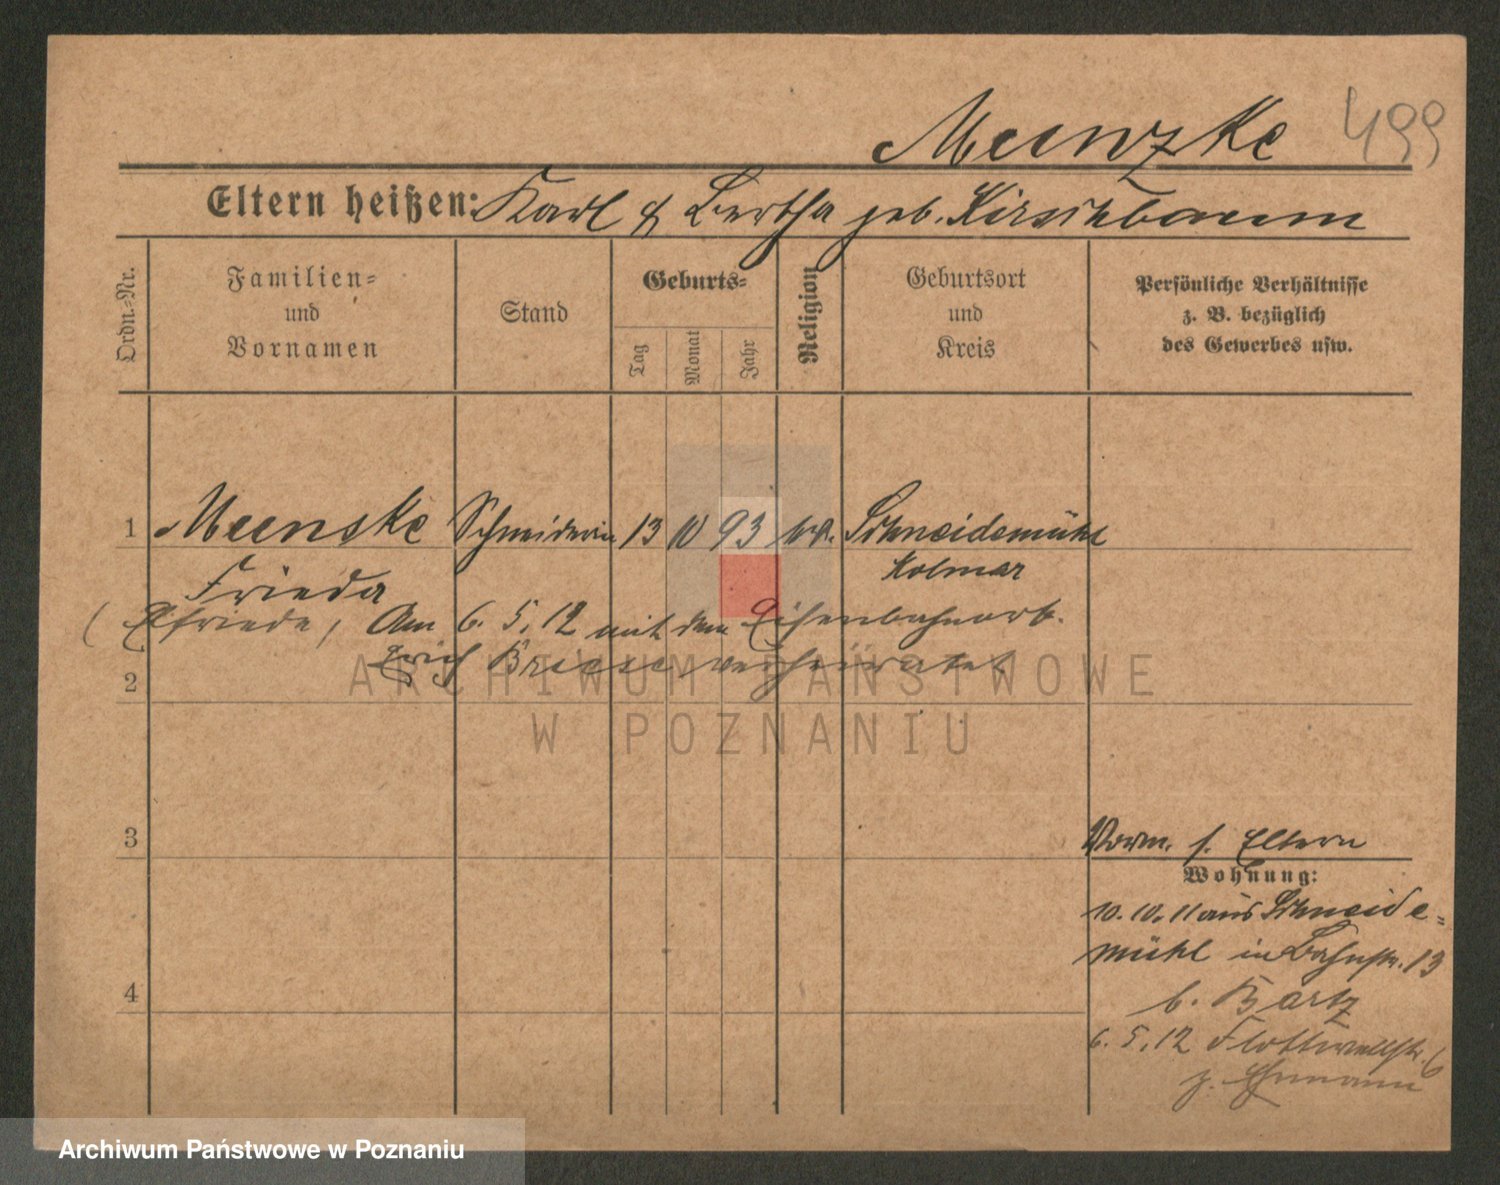 Meenzke 499
Eltern heißen: Karl & Bertha geb. Kirschbaum
Ordn.-Nr.
Familien-
und
Vornamen
Stand
Geburts-
Tag
Monat
Jahr
Religion
Geburtsort
und
Kreis
Persönliche Verhältnisse
z. B. bezüglich
des Gewerbes usw.
1 Meenske Schneiderin 13 10 93 Schneidemühl
Frieda Kolmar
(Elfriede, Am 6. 5. 12 mit dem Eisenbahnarb.
Erich Breese verheiratet
2
ARCHIWUM PAŃSTWOWE
W POZNANIU
3
Vorm. s. Eltern
Wohnung:
10. 10. 11 aus Schneide=
mühl in Bahnstr. 13
b. Bartz
4
6. 5. 12 Flottwellstr. 6
z. Ehemann
Archiwum Państwowe w Poznaniu